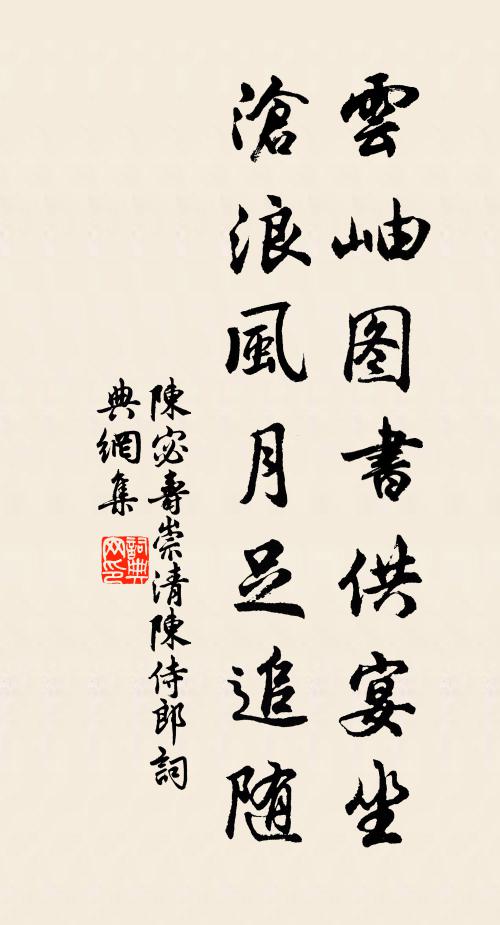 雲岫图書供宴坐
滄浪風月足追随
陳宓壽崇清陳侍郎詞
典網集
詞典网印